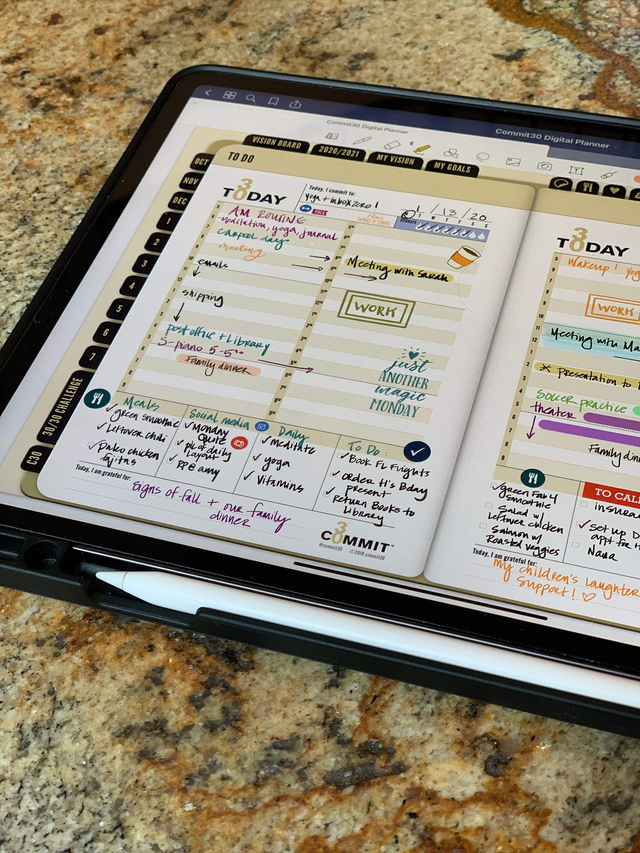 Commit30 Digital Planner
Commit30 Digital Planner
VISION BOARD
2020/2021
MY VISION
MY GOALS
OCT
NOV
DEC
1
2
3
4
5
6
7
30/30 CHALLENGE
C30
TO DO
30
TODAY
Today, I commit to:
yoga + inbox zero!
1/13/20
AM ROUTINE
-meditation, yoga, journal
carpool day-
meeting
emails
shipping
post office + Library
S-piano 5-5:30
Family dinner
Meeting with Sarah
WORK
just
ANOTHER
magic
MONDAY
Meals
green smoothie
Leftover chili
Paleo chicken
fajitas
Social media
Monday
Quote
pic of daily
Layout
Daily
meditate
yoga
Vitamins
To Do:
Book FL Flights
order H's Bday
present
Return Books to
Library
Today, I am grateful for:
signs of fall + our family
dinner
30
COMMIT
@commit30 ©2019 commit30
30
TODAY
Wakeup! Yog
WORK
Meeting with Ma
Presentation to
Soccer practice
theater
Family din
green
smoothie
Salad w/
Leftover chicken
Salmon w/
Roasted veggies
TO CAL
insura
set up D
appt for
Nana
Today, I am grateful for:
my children's laughter
Support!